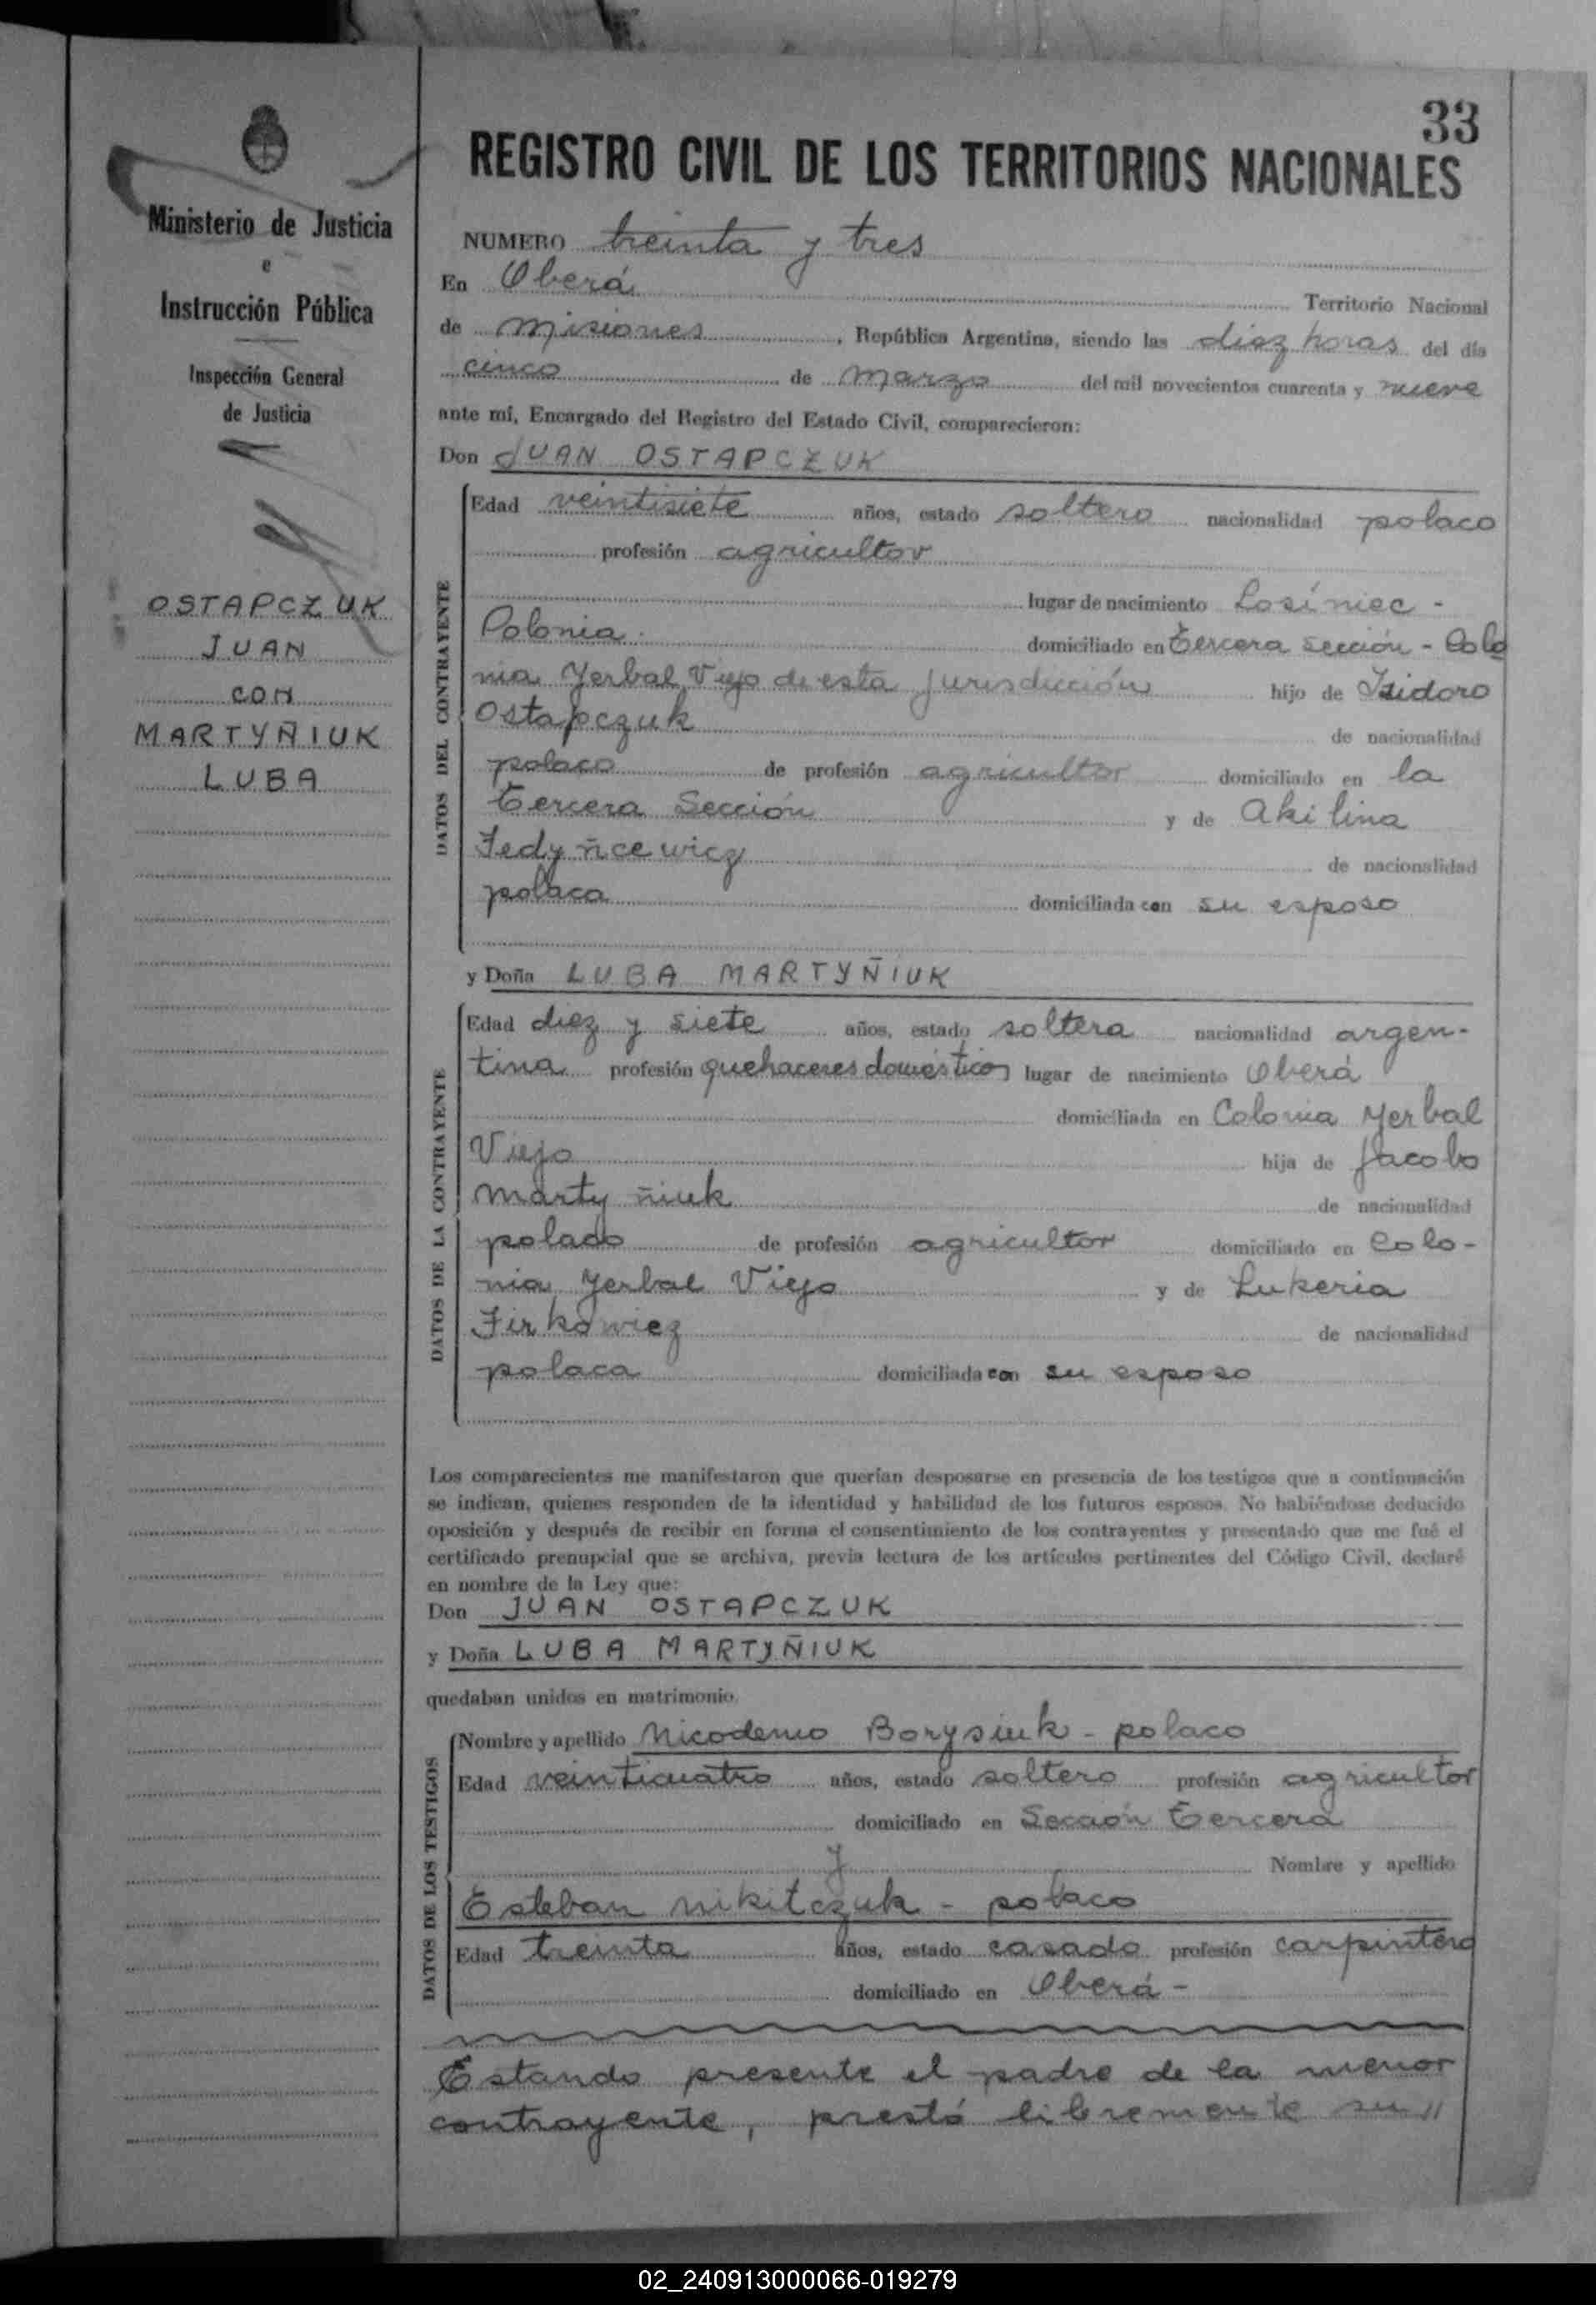 33
REGISTRO CIVIL DE LOS TERRITORIOS NACIONALES
Ministerio de Justicia
e
Instrucción Pública
Inspección General
de Justicia
OSTAPCZUK
JUAN
CON
MARTYÑIUK
LUBA
NUMERO treinta y tres
En Oberá Territorio Nacional
de Misiones, República Argentina, siendo las diez horas del día
cinco de Marzo del mil novecientos cuarenta y nueve
ante mí, Encargado del Registro del Estado Civil, comparecieron:
Don JUAN OSTAPCZUK
DATOS DEL CONTRAYENTE
Edad veintisiete años, estado soltero nacionalidad polaco
profesión agricultor
lugar de nacimiento Losíniec -
Polonia. domiciliado en Tercera sección - Colo
nia Yerbal Viejo de esta jurisdicción hijo de Isidoro
Ostapczuk de nacionalidad
polaco de profesión agricultor domiciliado en la
Tercera Sección y de Akilina
Fedyñcewicz de nacionalidad
polaca domiciliada con su esposo
y Doña LUBA MARTYÑIUK
DATOS DE LA CONTRAYENTE
Edad diez y siete años, estado soltera nacionalidad argen-
tina profesión quehaceres domésticos lugar de nacimiento Oberá
domiciliada en Colonia Yerbal
Viejo hija de Jacobo
Martyñiuk de nacionalidad
polado de profesión agricultor domiciliado en Colo-
nia Yerbal Viejo y de Lukeria
Firkowicz de nacionalidad
polaca domiciliada con su esposo
Los comparecientes me manifestaron que querían desposarse en presencia de los testigos que a continuación
se indican, quienes responden de la identidad y habilidad de los futuros esposos. No habiéndose deducido
oposición y después de recibir en forma el consentimiento de los contrayentes y presentado que me fué el
certificado prenupcial que se archiva, previa lectura de los artículos pertinentes del Código Civil, declaré
en nombre de la Ley que:
Don JUAN OSTAPCZUK
y Doña LUBA MARTYÑIUK
quedaban unidos en matrimonio.
DATOS DE LOS TESTIGOS
Nombre y apellido Nicodemo Borysiuk - polaco
Edad veinticuatro años, estado soltero profesión agricultor
domiciliado en Sección Tercera
y Nombre y apellido
Esteban Nikitczuk - polaco
Edad treinta años, estado casado profesión carpintero
domiciliado en Oberá -
Estando presente el padre de la menor
contrayente, prestó libremente su //
02_240913000066-019279